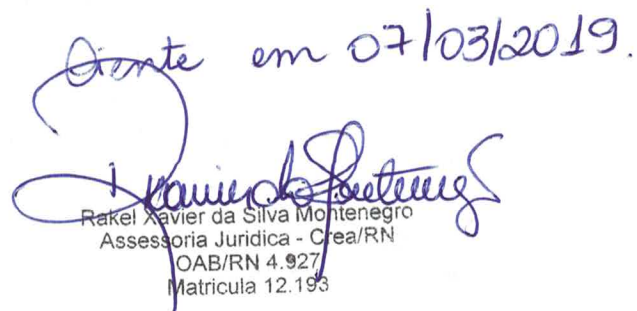 Ciente em 07/03/2019.
Rakel Xavier da Silva Montenegro
Assessoria Juridica - Crea/RN
OAB/RN 4.927
Matricula 12.193